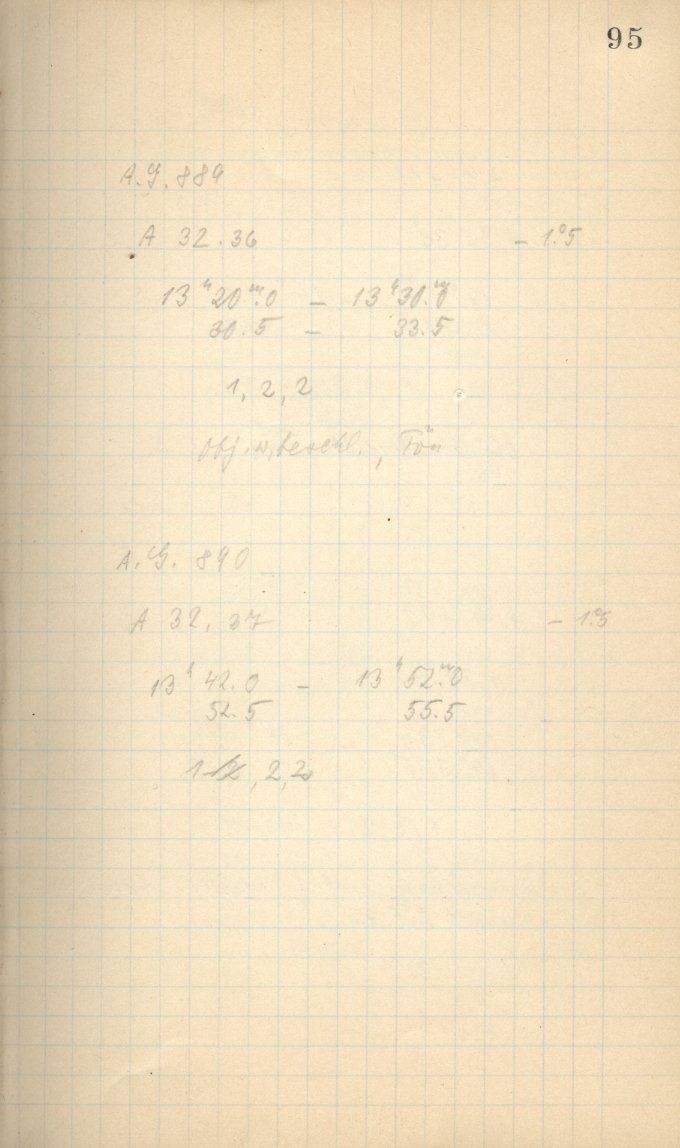 95
A.G. 889
A 32.36 – 1.°5
13ʰ20ᵐ.0 – 13ʰ30.ᵐ0
30.5 – 33.5
1, 2, 2
Obj. w, beschl., Fön
A.G. 890
A 32.37 – 1.°5
13ʰ42.0 – 13ʰ52ᵐ.0
52.5 55.5
1, 2, 2